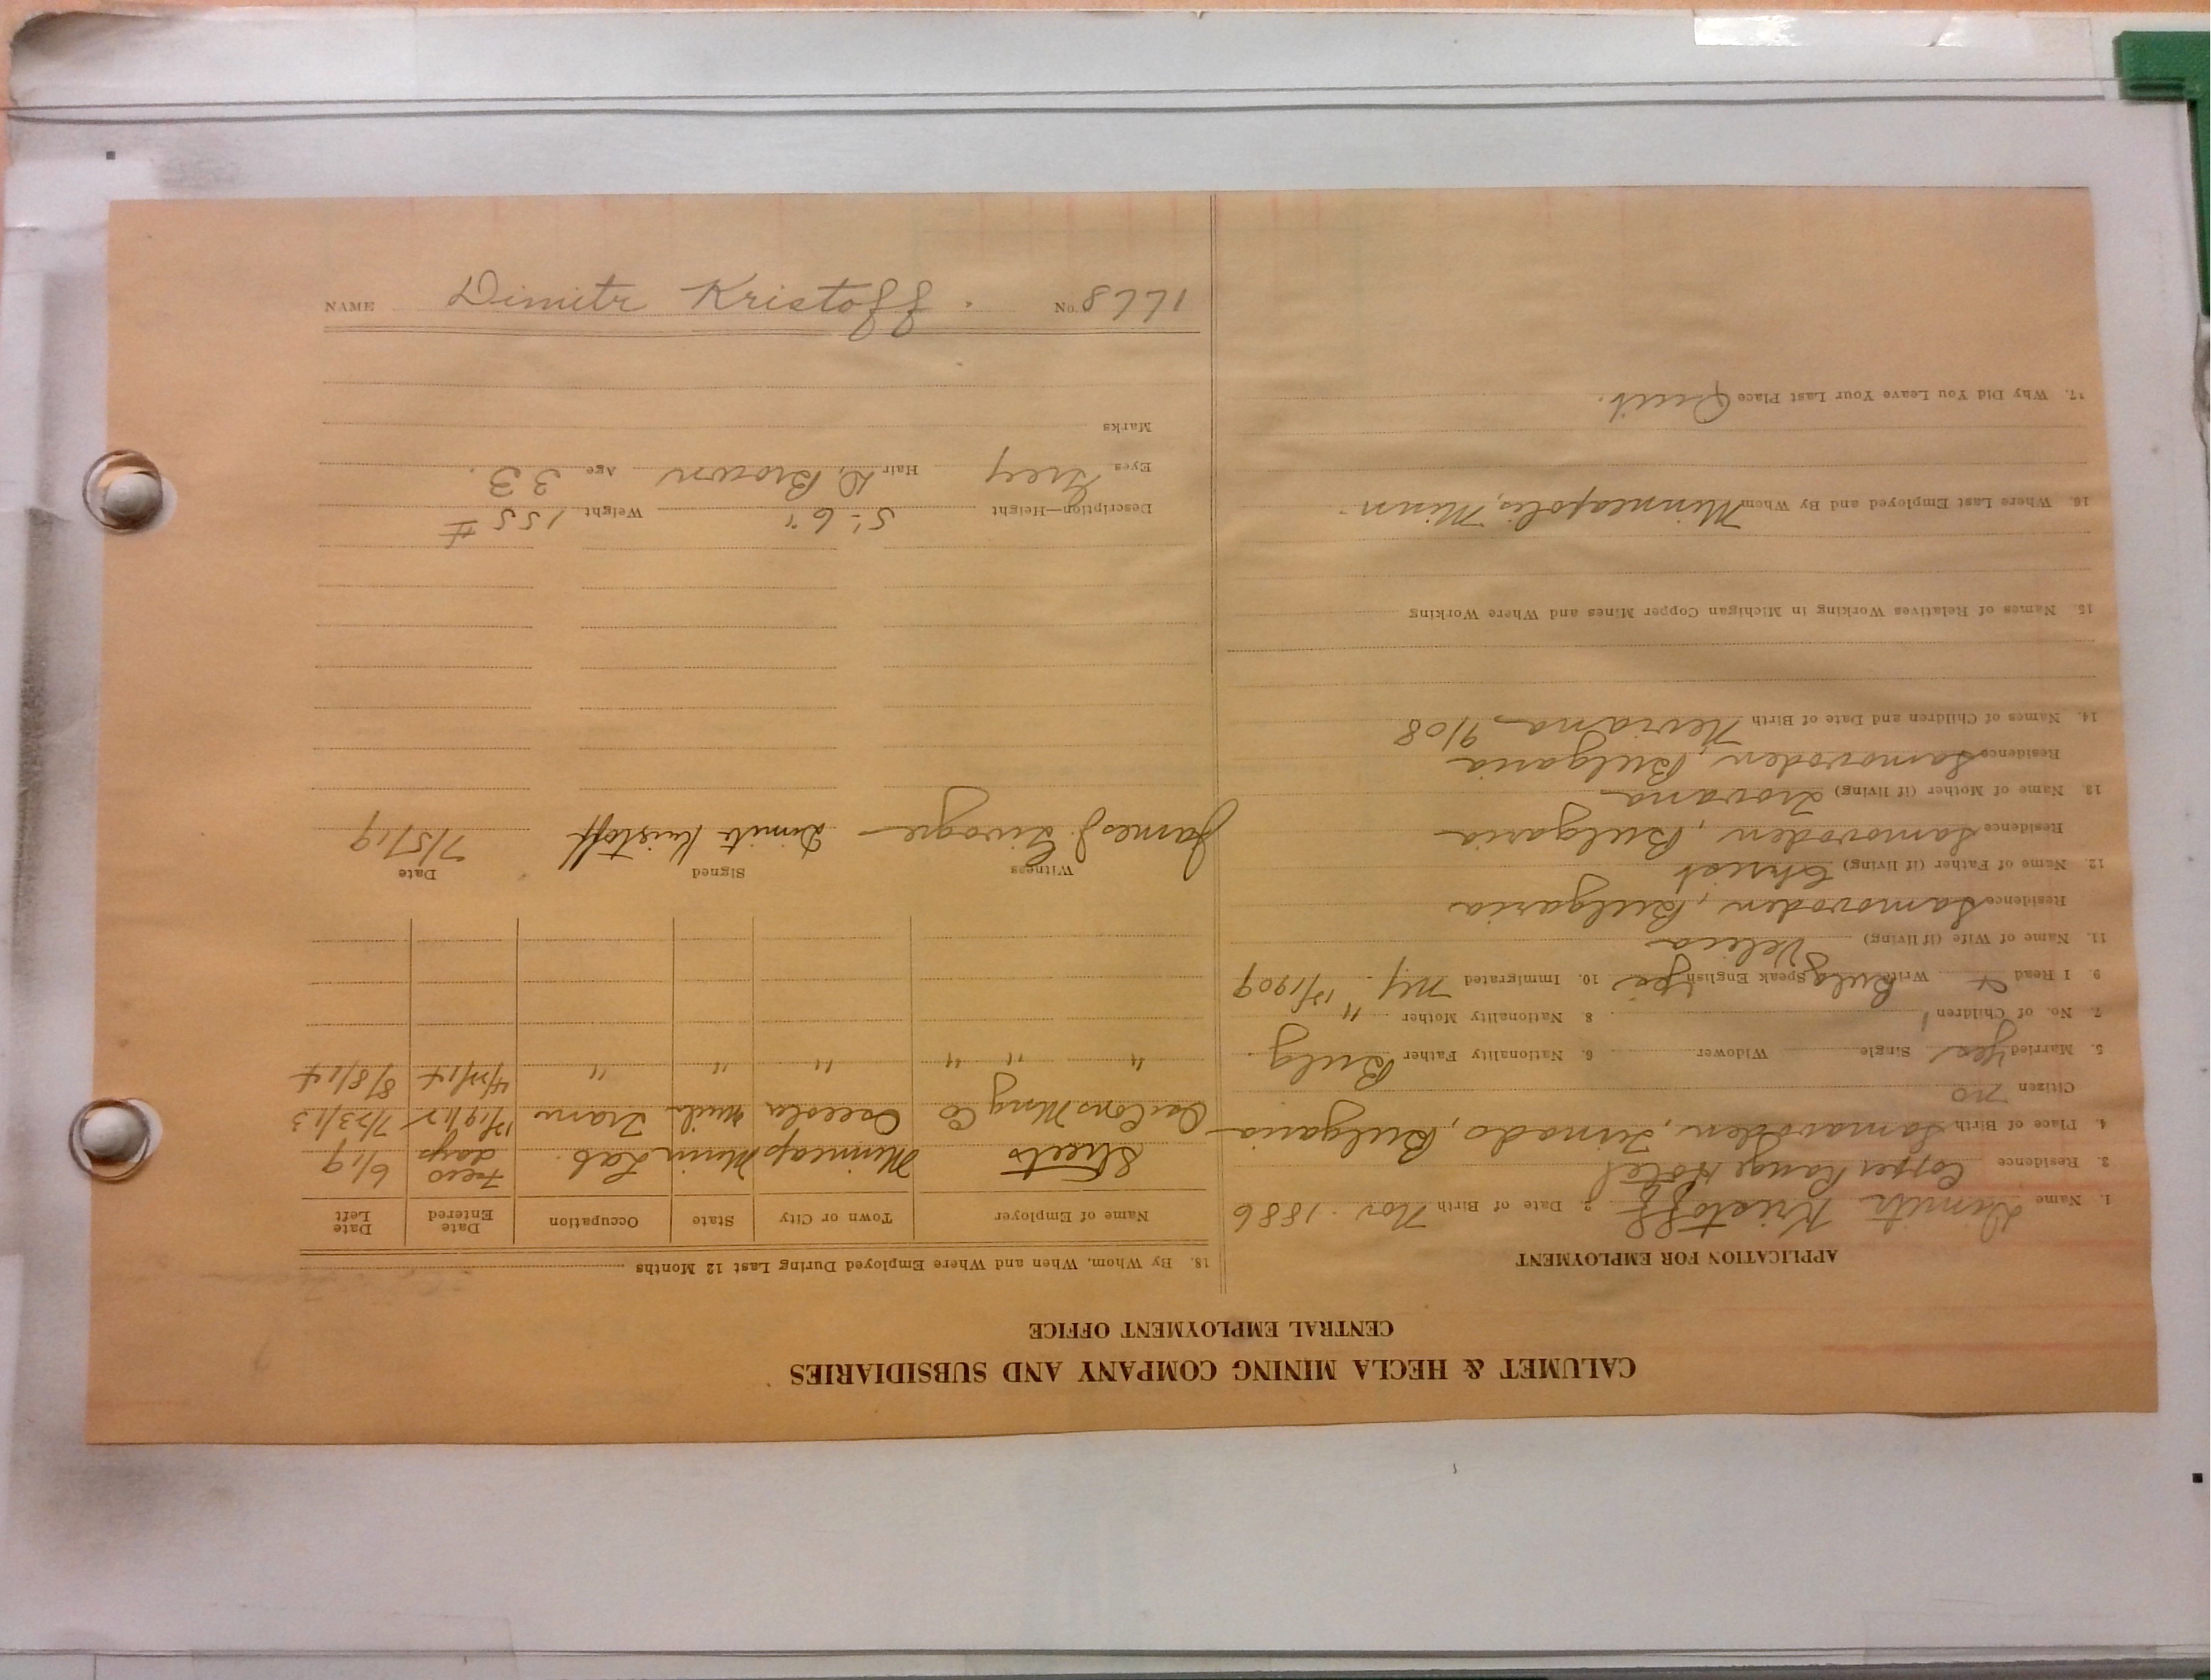 CALUMET & HECLA MINING COMPANY AND SUBSIDIARIES
CENTRAL EMPLOYMENT OFFICE
APPLICATION FOR EMPLOYMENT
1. Name Dimitr Kristoff 2. Date of Birth Nov. 1886
3. Residence Copper Range Hotel
4. Place of Birth Samavoden, Tirnado, Bulgaria
Citizen no
5. Married yes Single Widower 6. Nationality Father Bulg
7. No. of Children 1 8. Nationality Mother "
9. I Read & Write Bulg Speak English yes 10. Immigrated NY. 12/1909
11. Name of Wife (if living) Velica
Residence Samovoden, Bulgaria
12. Name of Father (if living) Christ
Residence Samovoden, Bulgaria
13. Name of Mother (if living)
Residence Samovoden, Bulgaria
14. Names of Children and Date of Birth 9/08
15. Names of Relatives Working in Michigan Copper Mines and Where Working
16. Where Last Employed and By Whom Minneapolis, Minn
17. Why Did You Leave Your Last Place Quit.
18. By Whom, When and Where Employed During Last 12 Months
Name of Employer Town or City State Occupation Date Entered Date Left
Streets Minneap Minn Lab. Few days 6/19
Osc Cons Mng Co Osceola Mich Tram 12/19/12 7/23/13
" " " " " " 4/22/14 8/8/14
Witness Signed Date
James J. Dimitr Kristoff 7/5/19
Description—Height 5'-6" Weight 155 #
Eyes Grey Hair D. Brown Age 33.
Marks
NAME Dimitr Kristoff. No. 8771